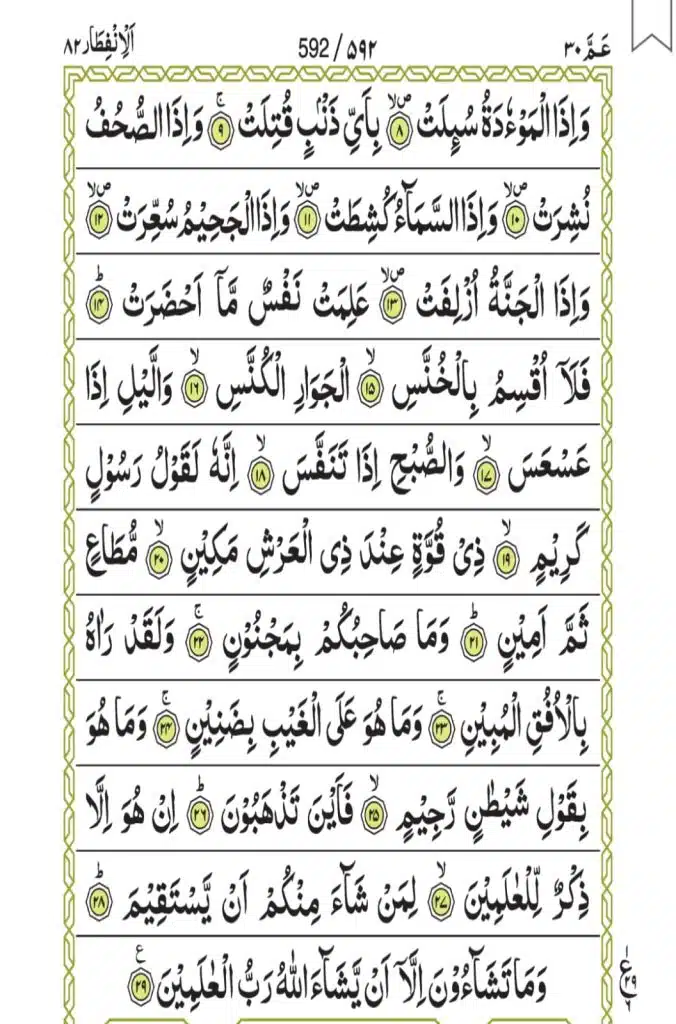 عَمَّ ٣٠ 592 / ٥٩٢ اَلْاِنْفِطَار ٨٢
وَاِذَا الْمَوْءٗدَةُ سُئِلَتْ ۪ۙ ٨ بِاَيِّ ذَنْۢبٍ قُتِلَتْ ۚ ٩ وَاِذَا الصُّحُفُ
نُشِرَتْ ۪ۙ ١٠ وَاِذَا السَّمَآءُ كُشِطَتْ ۪ۙ ١١ وَاِذَا الْجَحِيْمُ سُعِّرَتْ ۪ۙ ١٢
وَاِذَا الْجَنَّةُ اُزْلِفَتْ ۪ۙ ١٣ عَلِمَتْ نَفْسٌ مَّاۤ اَحْضَرَتْ ؕ ١٤
فَلَاۤ اُقْسِمُ بِالْخُنَّسِ ۙ ١٥ الْجَوَارِ الْكُنَّسِ ۙ ١٦ وَالَّيْلِ اِذَا
عَسْعَسَ ۙ ١٧ وَالصُّبْحِ اِذَا تَنَفَّسَ ۙ ١٨ اِنَّهٗ لَقَوْلُ رَسُوْلٍ
كَرِيْمٍ ۙ ١٩ ذِيْ قُوَّةٍ عِنْدَ ذِي الْعَرْشِ مَكِيْنٍ ۙ ٢٠ مُّطَاعٍ
ثَمَّ اَمِيْنٍ ؕ ٢١ وَمَا صَاحِبُكُمْ بِمَجْنُوْنٍ ۚ ٢٢ وَلَقَدْ رَاٰهُ
بِالْاُفُقِ الْمُبِيْنِ ۚ ٢٣ وَمَا هُوَ عَلَى الْغَيْبِ بِضَنِيْنٍ ۚ ٢٤ وَمَا هُوَ
بِقَوْلِ شَيْطٰنٍ رَّجِيْمٍ ۙ ٢٥ فَاَيْنَ تَذْهَبُوْنَ ؕ ٢٦ اِنْ هُوَ اِلَّا
ذِكْرٌ لِّلْعٰلَمِيْنَ ۙ ٢٧ لِمَنْ شَآءَ مِنْكُمْ اَنْ يَّسْتَقِيْمَ ؕ ٢٨
وَمَا تَشَآءُوْنَ اِلَّاۤ اَنْ يَّشَآءَ اللّٰهُ رَبُّ الْعٰلَمِيْنَ ٢٩ ع
١
ع ٢٩
٦